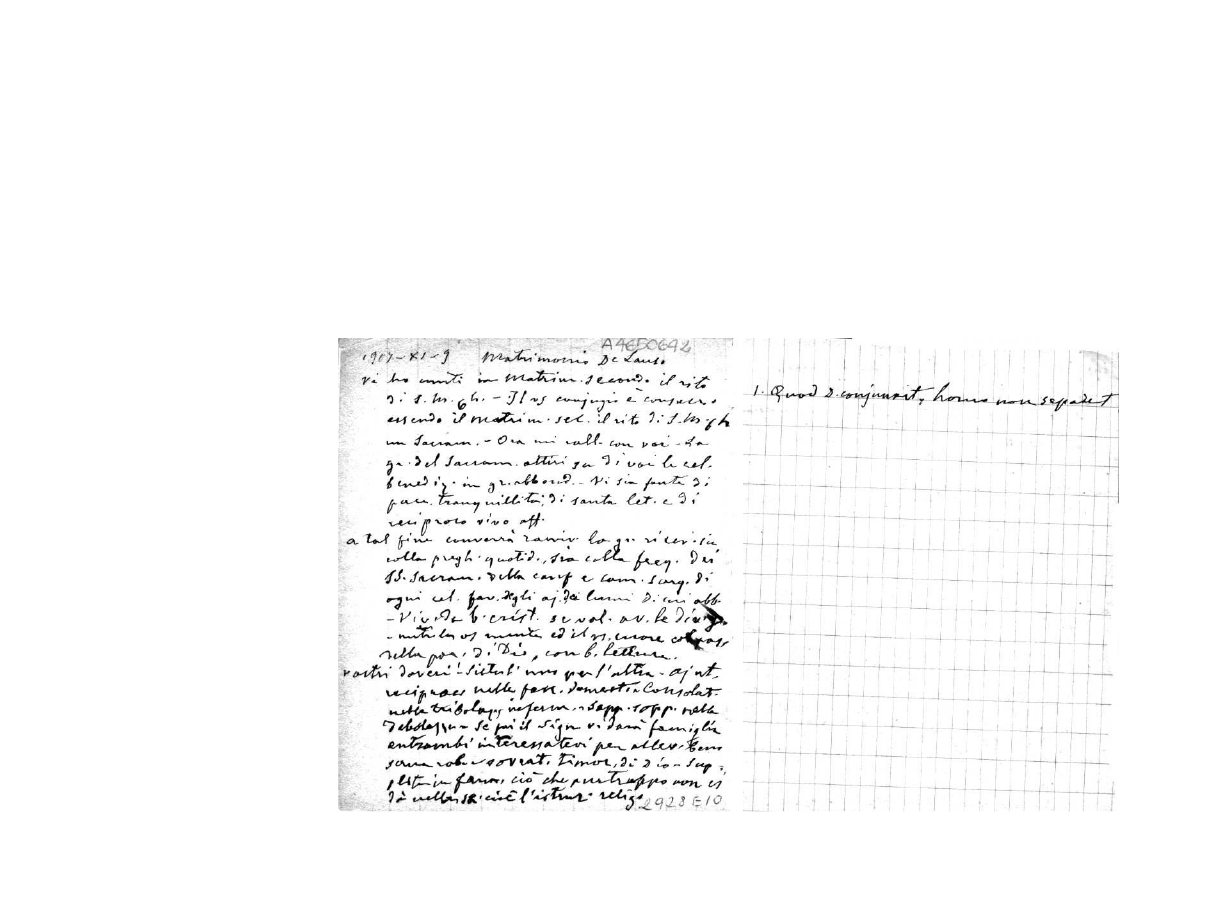 A4650692
1907-XI-9 Matrimonio De Lauso
vi ho uniti in Matrim. secondo il rito
di S. M. Ch. - Il vs conjugio è consacro
essendo il matrim. sec. il rito di S. M. Ch
un Sacram. - Ora mi rall. con voi - La
gr. del Sacram. attiri su di voi le cel.
benediz. in gr. abbond. - Vi sia fonte di
pace, tranquillità, di santa let. e di
reciproco vivo aff.
a tal fine converrà ravviv. la gr. ricev. sia
colla pregh. quotid., sia colla freq. dei
SS. Sacram. della conf e com. sorg. di
ogni cel. fav. degli aj. dei lumi di cui abb
- Vivete b. crist. se vol. av. le
- nutrite vs mente ed il vs. cuore
della par. di Dio, con b. letture.
vostri doveri: - Siate l'uno per l'altra - ajut.
reciproc. nelle facc. domest. - Consolat.
nelle tribolaz., inferm. - sopp. nelle
debolezze - Se poi il Sign. vi darà famiglia
entrambi interessatevi per allev.
sana rob. e sovrat. timor. di Dio - Sup
plite in fam. ciò che purtroppo non si
dà nelle sc. cioè l'istruz. relig.
2928 E10
1. Quod D. conjunxit, homo non separet